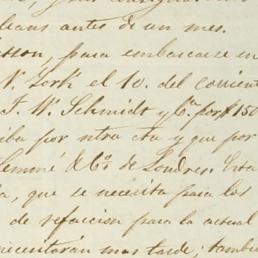 leans antes de un mes.
sson, para embarcarse en
N. York el 10. del corriente
F. W. Schmidt y Ca. por $ 150
iba por ntra cta y que por
Lemmé & Co. de Londres. Esta
a, que se necesita para los
de refaccion para la actual
necesitarán mas tarde; tambien